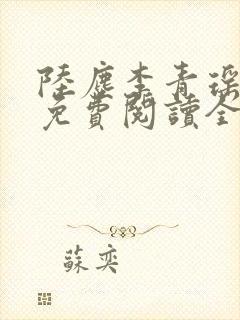 陸塵李青瑶
免費閱讀全
蘇奕